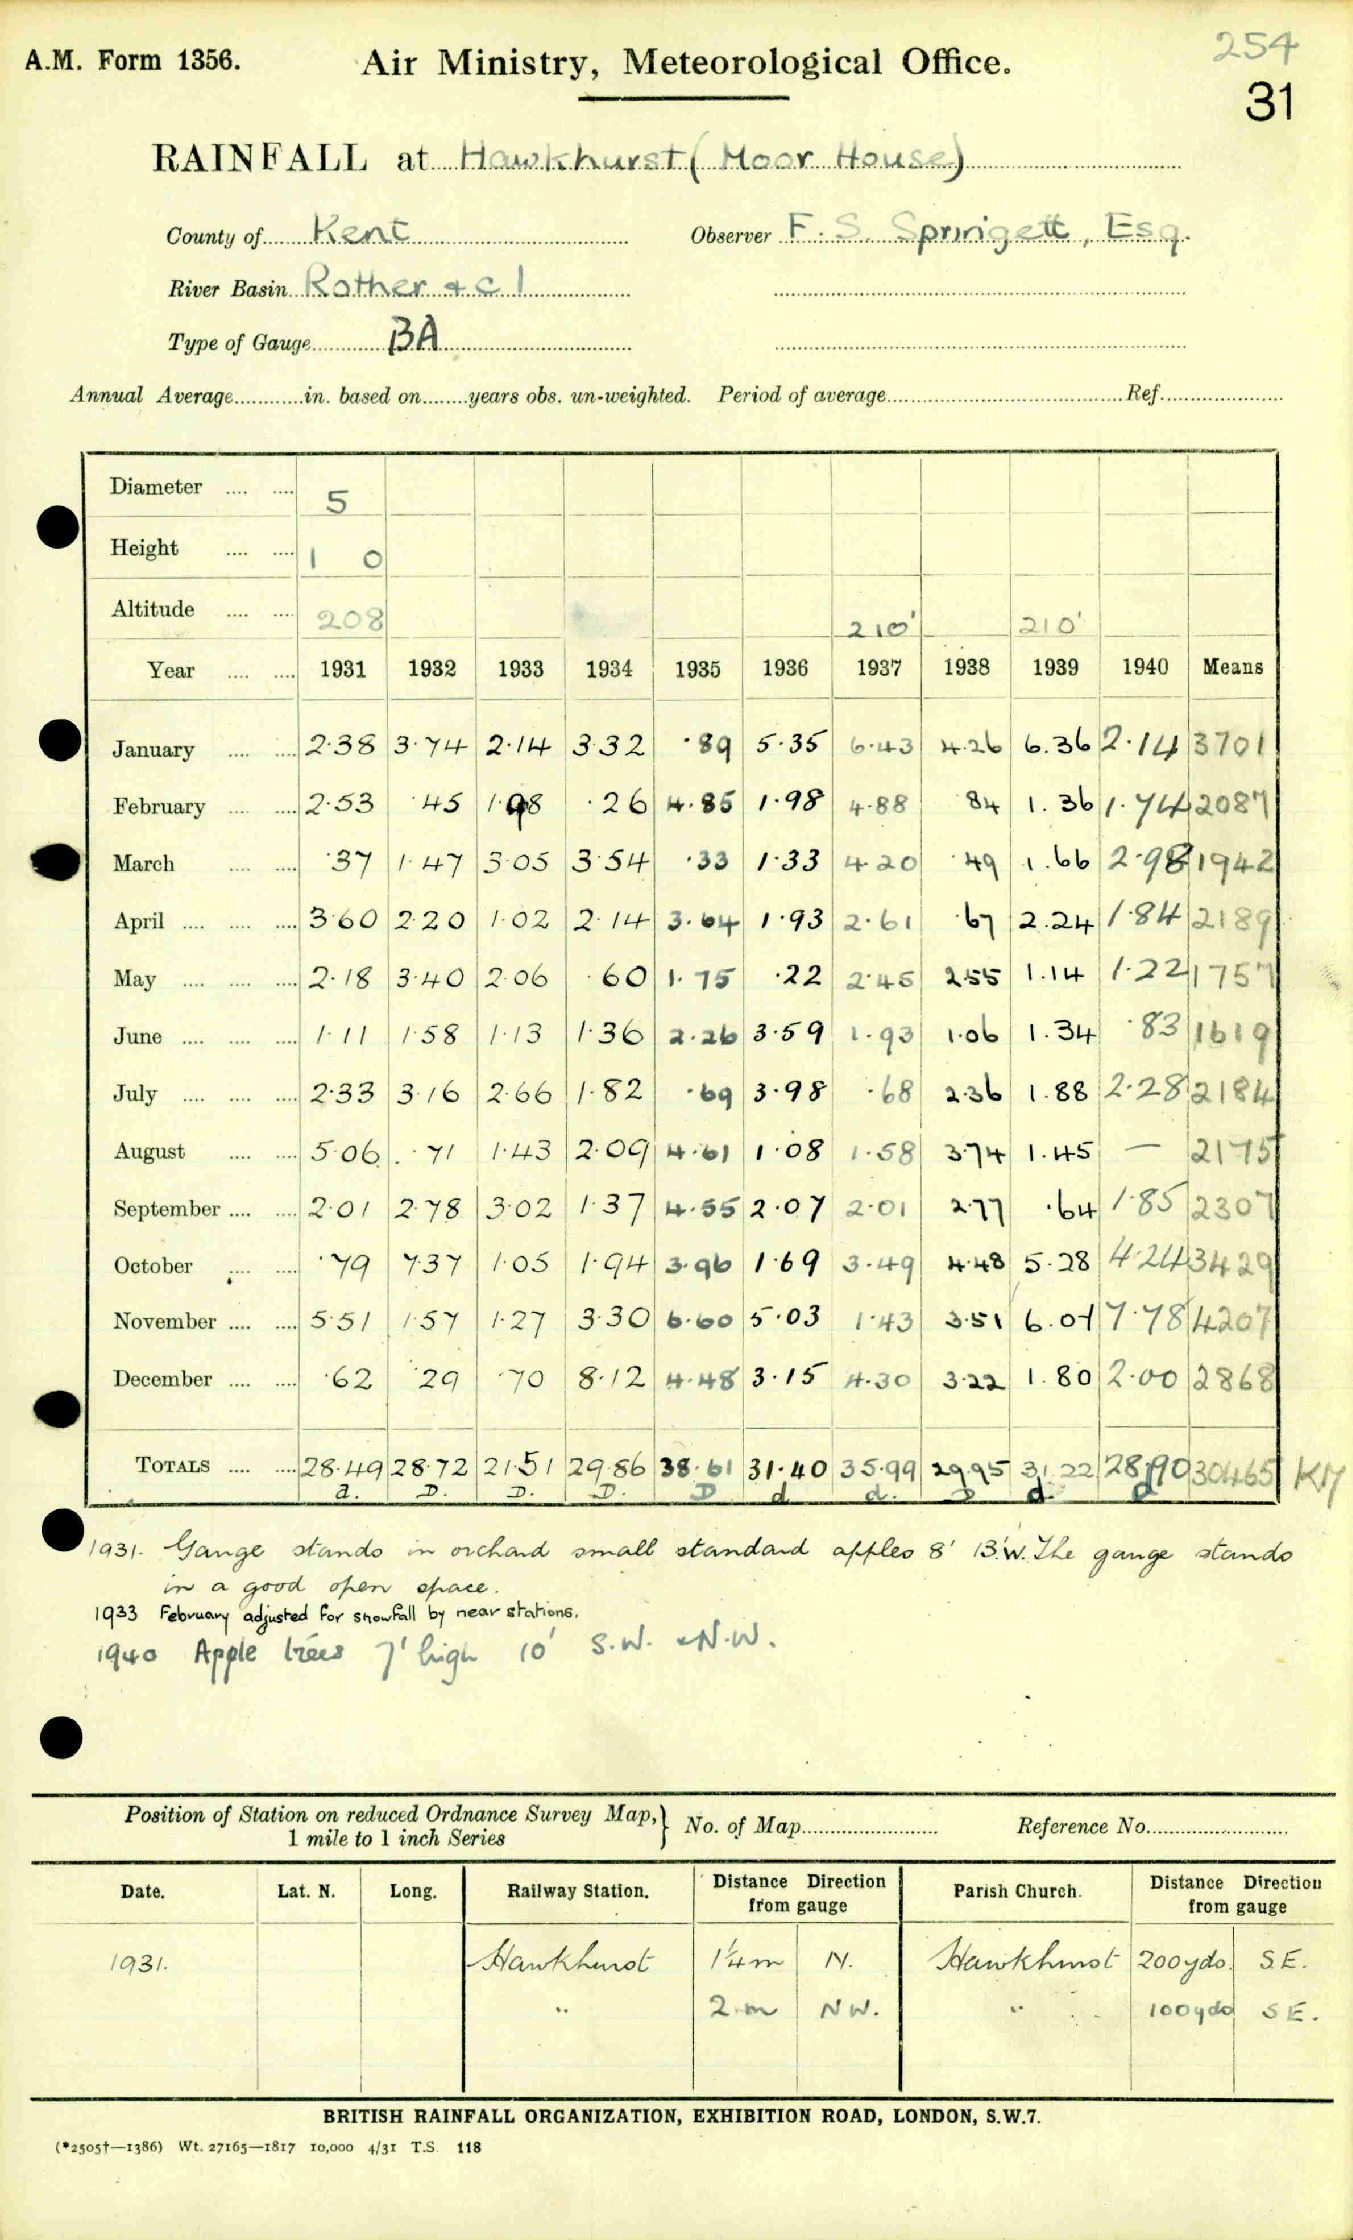 254
A.M. Form 1356. Air Ministry, Meteorological Office.
31
RAINFALL at Hawkhurst (Moor House)
County of Kent Observer F. S. Springett, Esq.
River Basin Rother + c 1
Type of Gauge BA
Annual Average............in. based on........years obs. un-weighted. Period of average........................Ref.....................
Diameter .... .... 5
Height .... .... 1 0
Altitude .... .... 208 210' 210'
Year .... .... 1931 1932 1933 1934 1935 1936 1937 1938 1939 1940 Means
January .... .... 2·38 3·74 2·14 3·32 ·89 5·35 6·43 4·26 6.36 2·14 3701
February .... .... 2·53 ·45 1·98 ·26 4·85 1·98 4·88 ·84 1.36 1·74 2087
March .... .... ·37 1·47 3·05 3·54 ·33 1·33 4·20 ·49 1.66 2·98 1942
April .... .... .... 3·60 2·20 1·02 2·14 3·64 1·93 2·61 ·67 2.24 1·84 2189
May .... .... .... 2·18 3·40 2·06 ·60 1·75 ·22 2·45 2·55 1.14 1·22 1757
June .... .... .... 1·11 1·58 1·13 1·36 2·26 3·59 1·93 1·06 1.34 ·83 1619
July .... .... .... 2·33 3·16 2·66 1·82 ·69 3·98 ·68 2·36 1.88 2·28 2184
August .... .... 5·06 ·71 1·43 2·09 4·61 1·08 1·58 3·74 1.45 — 2175
September .... .... 2·01 2·78 3·02 1·37 4·55 2·07 2·01 2·77 ·64 1·85 2307
October .... .... ·79 7·37 1·05 1·94 3·96 1·69 3·49 4·48 5·28 4·24 3429
November .... .... 5·51 1·57 1·27 3·30 6·60 5·03 1·43 3·51 6.07 7·78 4207
December .... .... ·62 ·29 ·70 8·12 4·48 3·15 4·30 3·22 1.80 2·00 2868
TOTALS .... .... 28·49 28·72 21·51 29·86 38·61 31·40 35·99 29·95 31.22 28·90 30465 KM
d. D. D. D. D d d. D d. d
1931. Gauge stands in orchard small standard apples 8' 13'.W. The gauge stands
in a good open space.
1933 February adjusted for snowfall by near stations.
1940 Apple trees 7' high 10' S.W. + N.W.
Position of Station on reduced Ordnance Survey Map,} No. of Map........................ Reference No.........................
1 mile to 1 inch Series
Date. Lat. N. Long. Railway Station. Distance from gauge Direction Parish Church. Distance from gauge Direction
1931. Hawkhurst 1¼m N. Hawkhurst 200yds. S.E.
" 2 m NW. " 100yds S E.
BRITISH RAINFALL ORGANIZATION, EXHIBITION ROAD, LONDON, S.W.7.
(*2505†—1386) Wt. 27165—1817 10,000 4/31 T.S. 118